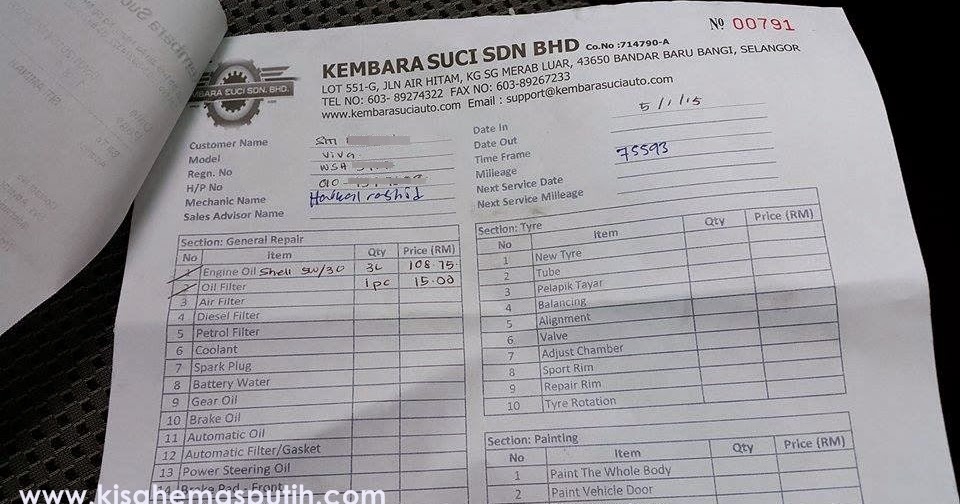 Nº 00791
KEMBARA SUCI SDN BHD Co.No :714790-A
LOT 551-G, JLN AIR HITAM, KG SG MERAB LUAR, 43650 BANDAR BARU BANGI, SELANGOR
TEL NO: 603- 89274322 FAX NO: 603-89267233
www.kembarasuciauto.com Email : support@kembarasuciauto.com
MBARA SUCI SDN. BHD.
Customer Name
Model Viva
Regn. No WSA
H/P No 010
Mechanic Name rashid
Sales Advisor Name
Date In 5/1/15
Date Out
Time Frame
Mileage 75593
Next Service Date
Next Service Mileage
Section: General Repair
No Item Qty Price (RM)
1 Engine Oil Shell 5W/30 3L 108.75
2 Oil Filter 1pc 15.00
3 Air Filter
4 Diesel Filter
5 Petrol Filter
6 Coolant
7 Spark Plug
8 Battery Water
9 Gear Oil
10 Brake Oil
11 Automatic Oil
12 Automatic Filter/Gasket
13 Power Steering Oil
14 Brake Pad - Front
Section: Tyre
No Item Qty Price (RM)
1 New Tyre
2 Tube
3 Pelapik Tayar
4 Balancing
5 Alignment
6 Valve
7 Adjust Chamber
8 Sport Rim
9 Repair Rim
10 Tyre Rotation
Section: Painting
No Item Qty Price (RM)
1 Paint The Whole Body
2 Paint Vehicle Door
www.kisahemasputih.com